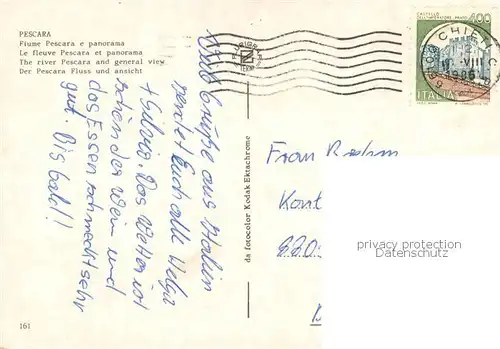 PESCARA
Fiume Pescara e panorama
Le fleuve Pescara et panorama
The river Pescara and general view
Der Pescara Fluss und ansicht
Grüße aus Italien
sendet Euch alle Helga
+ Silvia Das Wetter ist
schön der Wein und
das Essen schmeckt sehr
gut. Bis bald!
161
da fotocolor Kodak Ektachrome
CASTELLO
DELL'IMPERATORE - PRATO
400
CHIETI
VIII
1986
ITALIA
Frau
Kont
privacy protection
AnsichtskartenVersand.com